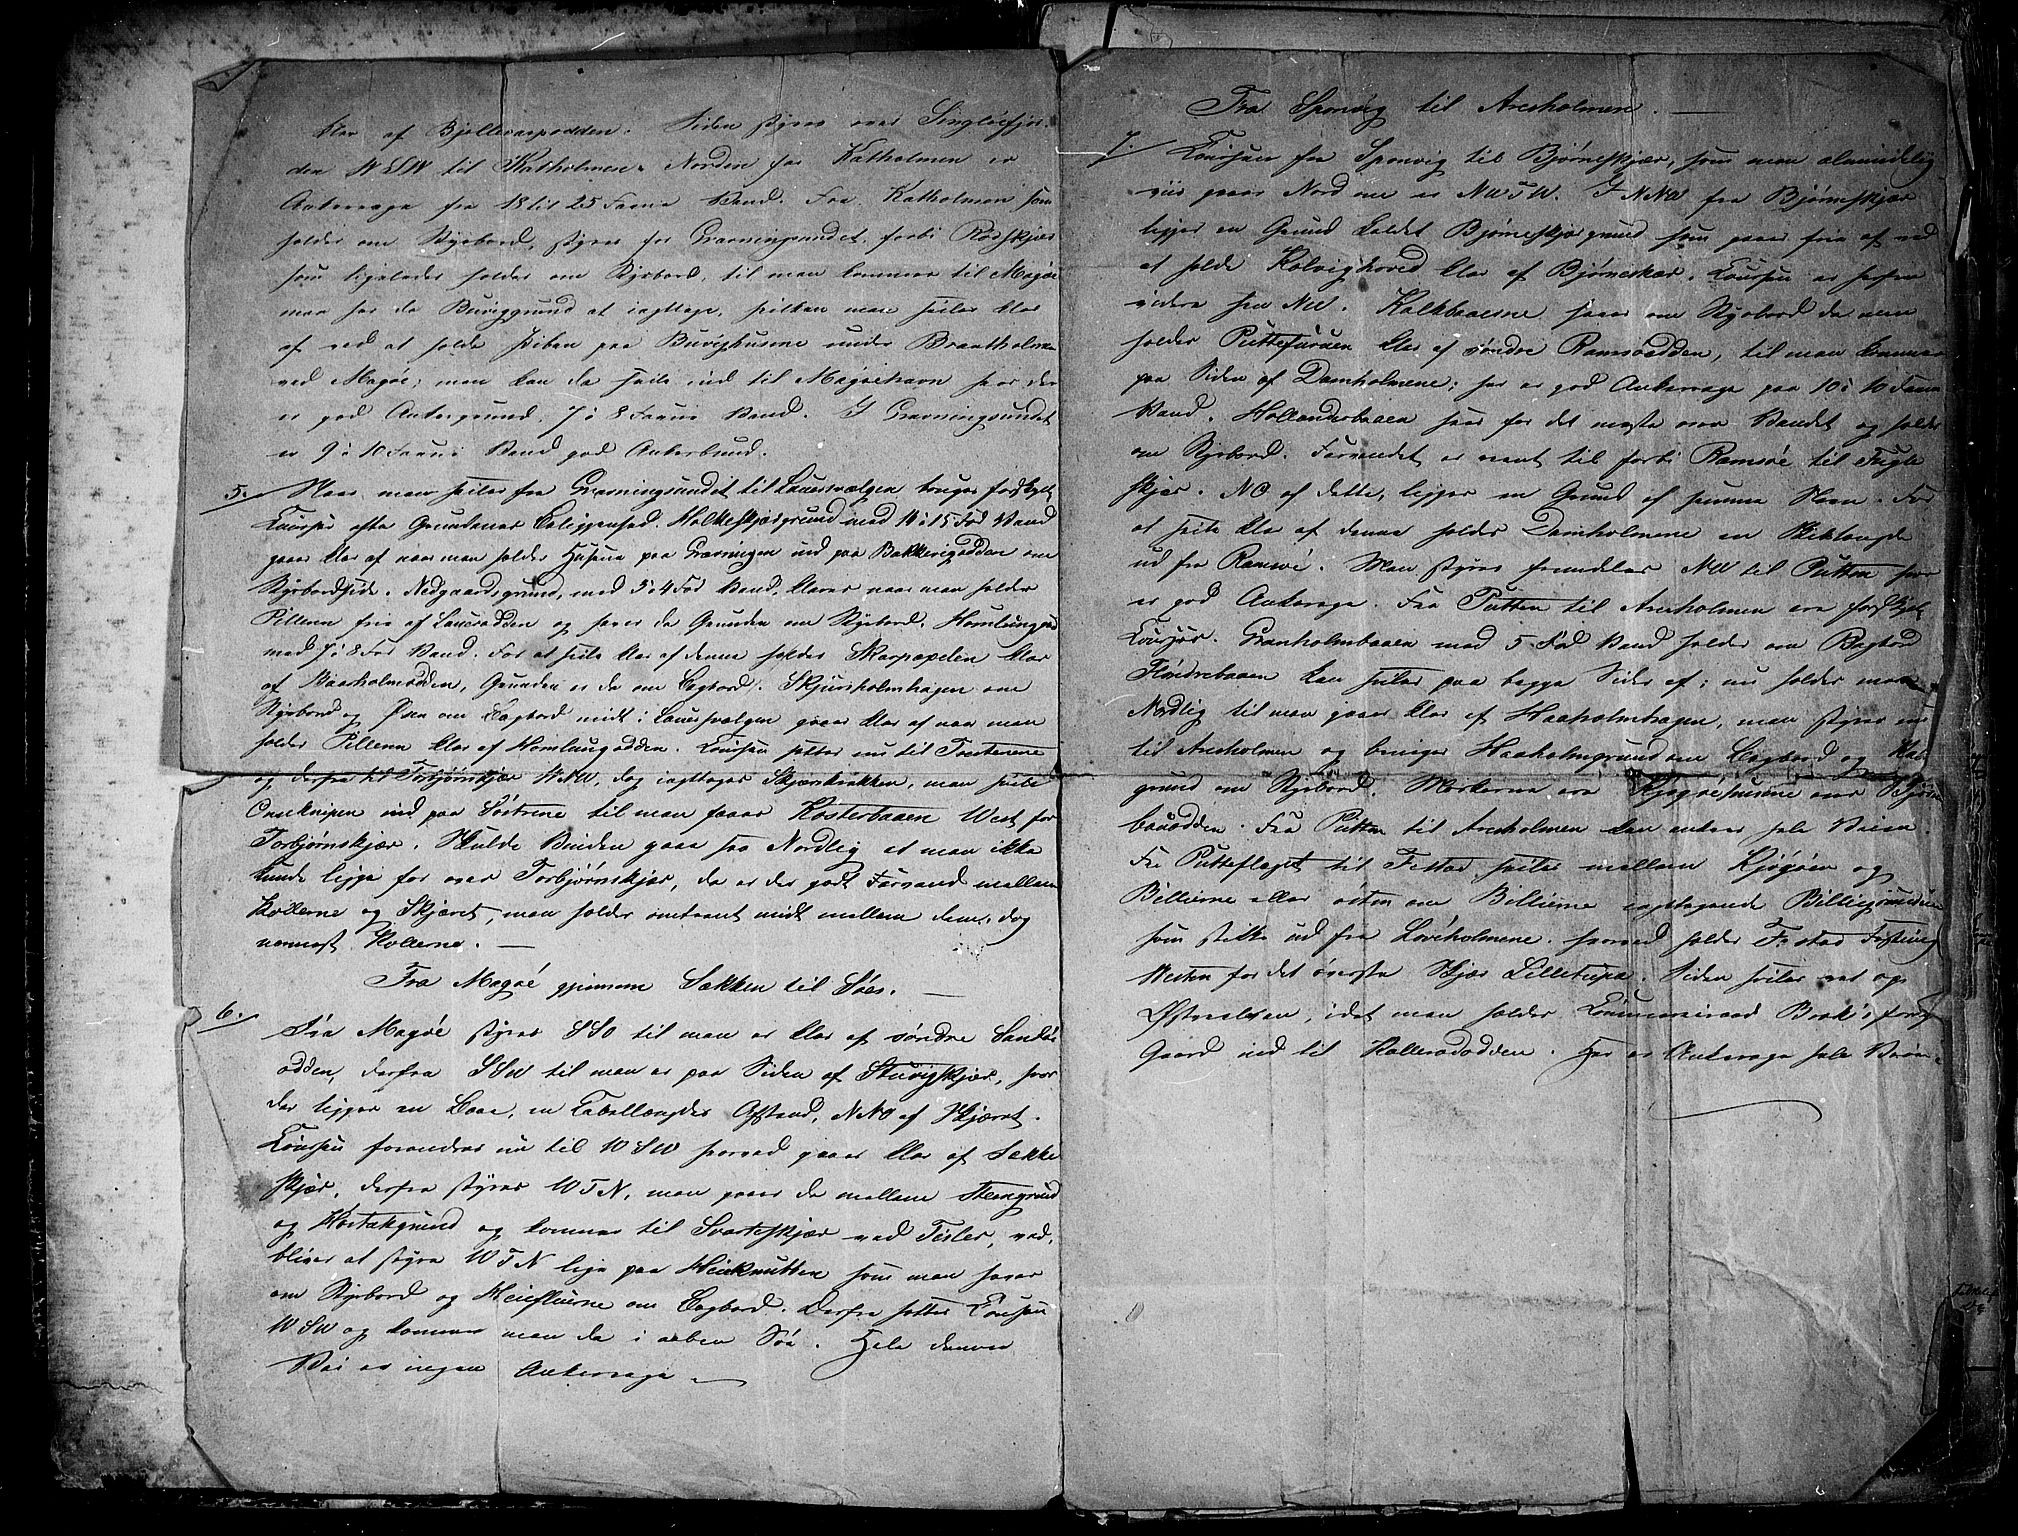 klar af Bjelleraspodden. Siden styres over Singleefjor-
den WSW til Katholmen. Norden for Katholmen er
Ankerage fra 18 til 25 Favne Vand. Fra Katholmen som
holdes om Styrbord, styres for Gravningsundet forbi Rødskjær
som ligeledes holdes om Styrbord, til man kommer til Magøe
man har da Buviggrund at iagttage, hvilken man seiler klar
af ved at holde Stiben paa Buvighusene under Brantholmen
ved Magøe; man kan da seile ind til Magøehavn hvor der
er god Ankergrund, 7 à 8 Favne Vand. I Gravningsundet
er 9 à 10 Favne Vand god Ankerbund.
5. Naar man seiler fra Gravningsundet til Lauersvælgen bruges forskjel.
Courser efter Grundenes Beliggenhed. Holkeskjærgrund med 14 à 15 Fod Vand
gaaes klar af naar man holder Husene paa Gravningen ind paa Bakkevigodden om
Styrbordside. Nedgaardsgrund, med 3 à 4 Fod Vand, klares naar man holder
Pillern frie af Lauerodden og haves da Grunden om Styrbord. Homlungen
med 7 à 8 Fod Vand. For at seile klar af denne holdes Skarpopslen klar
af Baasholmodden, Grunden er da om Bagbord. Skjursholmhagen om
Styrbord og Øsen om Bagbord midt i Lauersvælgen gaaes klar af naar man
holder Pillern klar af Homlungodden. Coursen settes nu til Tresteinene
og derfra til Torbjørnskjær WNW, dog iagttages Skjærsbrækken, man seiler
Oneknipen ind paa Søstrene til man faaer Kosterbaaen West for
Torbjørnskjær. Skulde Vinden gaae saa Nordlig at man ikke
kunde ligge for over Torbjørnskjær, da er der godt Farvand mellem
Kollerne og Skjæret, man holder omtrent midt mellem dem, dog
nærmest Kollerne. —
Fra Magøe gjennem Sækken til Søes. —
6. Fra Magøe styres SSO til man er klar af søndre Sandøe
odden, derfra SSW til man er paa Siden af Stuvigskjær, hvor
der ligger en Baae, en Kabellængdes Afstand, NNO af Skjæret.
Coursen forandres nu til WSW hvorved gaaes klar af Sække
skjær, derfra styres WTN, man gaaer da mellem Steengrund
og Hostakgrund og kommer til Svarteskjær ved Tisler, ved-
bliver at styre WTN lige paa Heieknutten som man haver
om Styrbord og Heiefluerne om Bagbord. Derfra settes Coursen
WSW og kommer man da i aaben Søe. Hele denne
Vei er ingen Ankerage. —
Fra Sponvig til Aresholmen. —
7. Coursen fra Sponvig til Bjørneskjær, som man almindelig
viis gaaer Norden om er NWTW. I NNW fra Bjørneskjær
ligger en Grund kaldet Bjørneskjærgrund som gaaes frie af ved
at holde Kolvighoved klar af Bjørneskær. Coursen er herfra
videre hen NW. Kalkbaaerne haves om Styrbord da man
holder Puttefuruen klar af søndre Ramsøodden, til man kommer
paa Siden af Damholmene; her er god Ankerage paa 10 à 16 Favne
Vand. Hollenderbaaen haves for det meste over Vandet og holdes
om Styrbord. Farvandet er rent til forbi Ramsøe til Fugle
skjær. NO af dette, ligger en Grund af samme Navn. For
at seile klar af denne holdes Damholmene en Skiblængde
ud fra Ramsøe. Man styrer fremdeles NW til Putten hvor
er god Ankerage. Fra Putten til Aresholmen ere forskjel.
Courser. Granholmbaaen med 5 Fod Vand holdes om Bagbord
Flyndrebaaen kan seiles paa begge Sider af; nu holdes man
Nordlig til man gaaer klar af Haaholmhagen, man styrer nu
til Aresholmen og beniger Haaholmgrund om Bagbord og
grund om Styrbord. Merkerne ere Kjøgøehusene over Bjørn
baaodden. Fra Putten til Aresholmen kan ankres hele Veien.
Fra Putteflaget til Festad seiles mellem Kjøgøen og
Billierne eller østen om Billierne iagttagende Billiegrunden
som stikker ud fra Løveholmene. hvorved holdes Festad
Westen for det øverste Skjær Lilletupa. Siden seiles ret op
Østerelven, idet man holder Commerceraad gaard
Gaard ind til Kallerødodden. Her er Ankerage hele Veien.